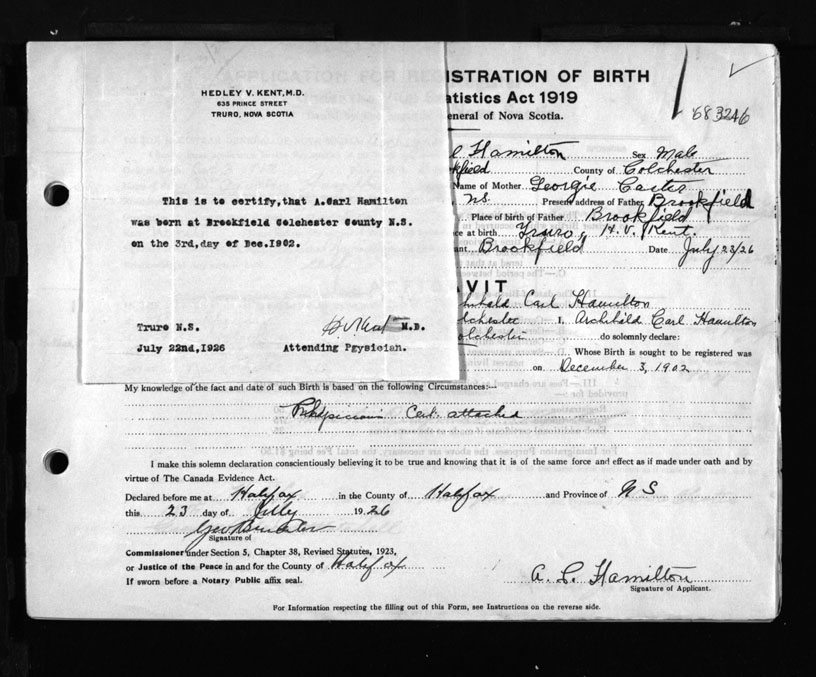 HEDLEY V. KENT, M.D.
635 PRINCE STREET
TRURO, NOVA SCOTIA
This is to certify, that A.Carl Hamilton
was born at Brookfield Colchester County N.S.
on the 3rd, day of Dec. 1902.
Truro N.S. H V Kent M.D.
July 22nd, 1926 Attending Pgysician.
ISTRATION OF BIRTH
atistics Act 1919
eneral of Nova Scotia.
683246
l Hamilton Sex Male
kfield County of Colchester
Name of Mother Georgie Carter
N.S. Present address of Father Brookfield
Place of birth of Father Brookfield
ce at birth Truro, H. V. Kent.
ant Brookfield Date July 23/26
AVIT
hibald Carl Hamilton
lchester I, Archibald Carl Hamilton
olchester do solemnly declare:
Whose Birth is sought to be registered was
on December 3, 1902
My knowledge of the fact and date of such Birth is based on the following Circumstances:—
Physicians Cert. attached
I make this solemn declaration conscientiously believing it to be true and knowing that it is of the same force and effect as if made under oath and by
virtue of The Canada Evidence Act.
Declared before me at Halifax in the County of Halifax and Province of N S
this 23 day of July 1926
Signature of
Commissioner under Section 5, Chapter 38, Revised Statutes, 1923,
or Justice of the Peace in and for the County of Halifax
If sworn before a Notary Public affix seal.
A. C. Hamilton
Signature of Applicant.
For Information respecting the filling out of this Form, see Instructions on the reverse side.